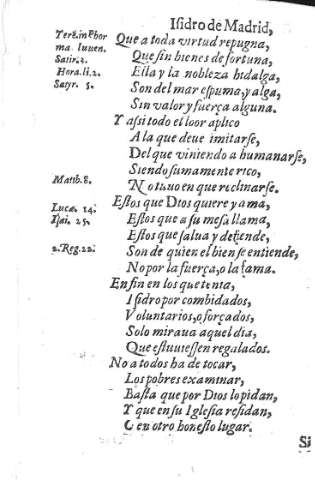 Isidro de Madrid,
Terẽ. in Phor
ma. Iuuen.
Satir. 1.
Hora. li. 2.
Satyr. 5.
Que a toda virtud repugna,
Que sin bienes de fortuna,
Ella y la nobleza hidalga,
Son del mar espuma, y alga,
Sin valor y fuerça alguna.
Y assi todo el loor aplico
A la que deue imitarse,
Del que viniendo a humanarse,
Siendo sumamente rico,
Matth. 8.
No tuuo en que reclinarse.
Lucæ. 14.
Isai. 25.
Estos que Dios quiere y ama,
Estos que a su mesa llama,
Estos que salua y defiende,
2. Reg. 22.
Son de quien el bien se entiende,
No por la fuerça, o la fama.
En fin en los que tenia,
Isidro por combidados,
Voluntarios, o forçados,
Solo miraua aquel dia,
Que estuuiessen regalados.
No a todos ha de tocar,
Los pobres examinar,
Basta que por Dios lo pidan,
Y que en su Iglesia residan,
O en otro honesto lugar.
Si